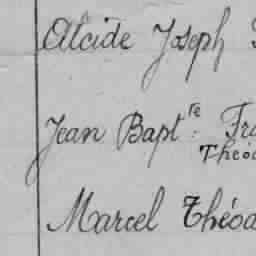 Alcide Joseph
Jean Bapt.te Fra
Théod
Marcel Théod